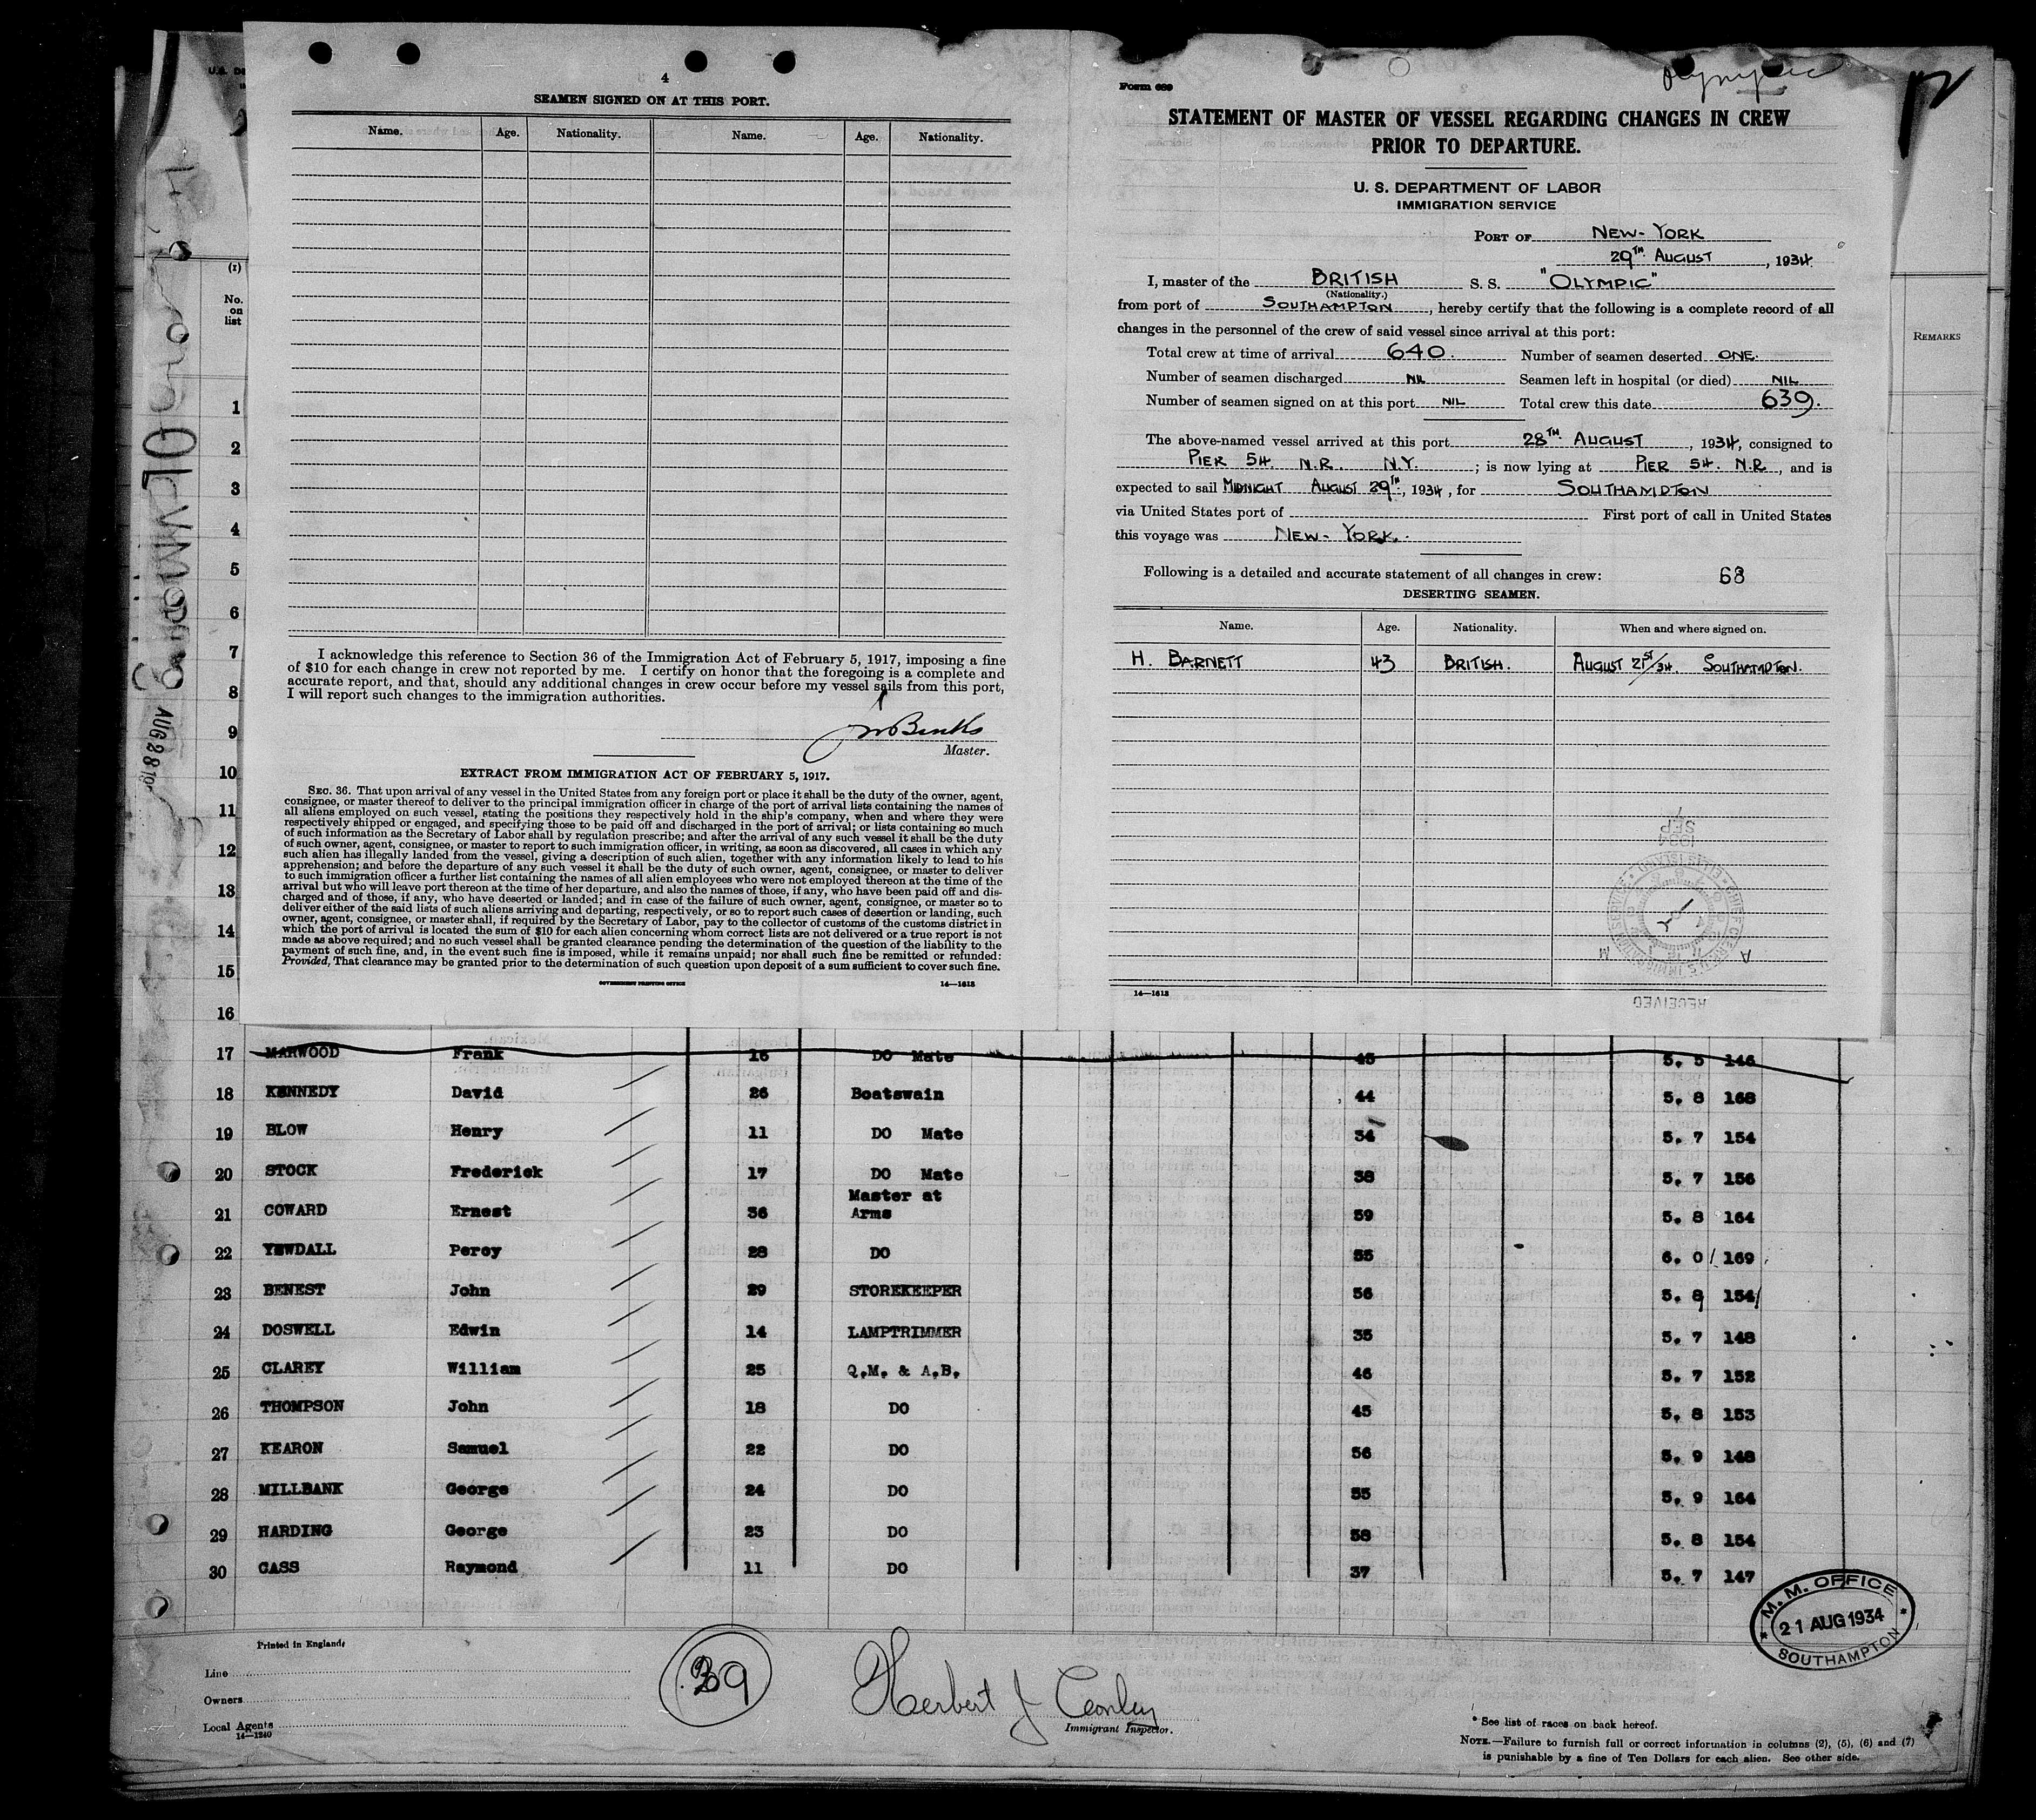 4
SEAMEN SIGNED ON AT THIS PORT.
Name. Age. Nationality. Name. Age. Nationality.
I acknowledge this reference to Section 36 of the Immigration Act of February 5, 1917, imposing a fine
of $10 for each change in crew not reported by me. I certify on honor that the foregoing is a complete and
accurate report, and that, should any additional changes in crew occur before my vessel sails from this port,
I will report such changes to the immigration authorities.
Binks
Master.
EXTRACT FROM IMMIGRATION ACT OF FEBRUARY 5, 1917.
SEC. 36. That upon arrival of any vessel in the United States from any foreign port or place it shall be the duty of the owner, agent,
consignee, or master thereof to deliver to the principal immigration officer in charge of the port of arrival lists containing the names of
all aliens employed on such vessel, stating the positions they respectively hold in the ship's company, when and where they were
respectively shipped or engaged, and specifying those to be paid off and discharged in the port of arrival; or lists containing so much
of such information as the Secretary of Labor shall by regulation prescribe; and after the arrival of any such vessel it shall be the duty
of such owner, agent, consignee, or master to report to such immigration officer, in writing, as soon as discovered, all cases in which any
such alien has illegally landed from the vessel, giving a description of such alien, together with any information likely to lead to his
apprehension; and before the departure of any such vessel it shall be the duty of such owner, agent, consignee, or master to deliver
to such immigration officer a further list containing the names of all alien employees who were not employed thereon at the time of the
arrival but who will leave port thereon at the time of her departure, and also the names of those, if any, who have been paid off and dis-
charged and of those, if any, who have deserted or landed; and in case of the failure of such owner, agent, consignee, or master so to
deliver either of the said lists of such aliens arriving and departing, respectively, or so to report such cases of desertion or landing, such
owner, agent, consignee, or master shall, if required by the Secretary of Labor, pay to the collector of customs of the customs district in
which the port of arrival is located the sum of $10 for each alien concerning whom correct lists are not delivered or a true report is not
made as above required; and no such vessel shall be granted clearance pending the determination of the question of the liability to the
payment of such fine, and, in the event such fine is imposed, while it remains unpaid; nor shall such fine be remitted or refunded:
Provided, That clearance may be granted prior to the determination of such question upon deposit of a sum sufficient to cover such fine.
GOVERNMENT PRINTING OFFICE 14—1613
Form 689
Olympic
STATEMENT OF MASTER OF VESSEL REGARDING CHANGES IN CREW
PRIOR TO DEPARTURE.
U. S. DEPARTMENT OF LABOR
IMMIGRATION SERVICE
PORT OF NEW-YORK
29TH AUGUST, 1934.
I, master of the BRITISH S. S. "OLYMPIC"
(Nationality.)
from port of SOUTHAMPTON, hereby certify that the following is a complete record of all
changes in the personnel of the crew of said vessel since arrival at this port:
Total crew at time of arrival 640. Number of seamen deserted ONE.
Number of seamen discharged NIL Seamen left in hospital (or died) NIL
Number of seamen signed on at this port NIL Total crew this date 639.
The above-named vessel arrived at this port 28TH AUGUST, 1934, consigned to
PIER 54. N.R. N.Y.; is now lying at PIER 54. N.R., and is
expected to sail MIDNIGHT AUGUST 29TH, 1934, for SOUTHAMPTON
via United States port of First port of call in United States
this voyage was NEW-YORK.
Following is a detailed and accurate statement of all changes in crew: 68
DESERTING SEAMEN.
Name. Age. Nationality. When and where signed on.
H. BARNETT 43 BRITISH. AUGUST 21ST/34. SOUTHAMPTON.
1934
SEP
RECEIVED
14—1613
REMARKS
(1)
No.
on
list
1
2
3
4
5
6
7
8
9
10
11
12
13
14
15
16
AUG 28
17 MARWOOD Frank 16 DO Mate 45 5. 5 146
18 KENNEDY David 26 Boatswain 44 5. 8 168
19 BLOW Henry 11 DO Mate 34 5. 7 154
20 STOCK Frederick 17 DO Mate 38 5. 7 156
21 COWARD Ernest 36 Master at Arms 59 5. 8 164
22 YEWDALL Percy 28 DO 55 6. 0 169
23 BENEST John 29 STOREKEEPER 56 5. 8 154
24 DOSWELL Edwin 14 LAMPTRIMMER 35 5. 7 148
25 CLAREY William 25 Q.M. & A.B. 46 5. 7 152
26 THOMPSON John 18 DO 45 5. 8 153
27 KEARON Samuel 22 DO 56 5. 9 148
28 MILLBANK George 24 DO 55 5. 9 164
29 HARDING George 23 DO 58 5. 8 154
30 CASS Raymond 11 DO 37 5. 7 147
M. M. OFFICE
21 AUG 1934
SOUTHAMPTON
Printed in England.
Line
Owners
Local Agents
14—1240
39
Herbert J Conley
Immigrant Inspector.
* See list of races on back hereof.
NOTE.—Failure to furnish full or correct information in columns (2), (5), (6) and (7)
is punishable by a fine of Ten Dollars for each alien. See other side.